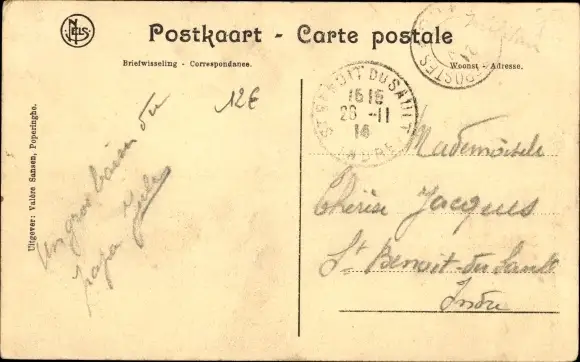 NELS
Postkaart - Carte postale
Briefwisseling - Correspondance.
Woonst - Adresse.
12€
Un gros baiser du
papa Jules
Uitgever: Valère Sansen, Poperinghe.
ST BENOIT DU SAULT
15 15
28 -11
14
INDRE
POSTES
Mademoiselle
Thérèse Jacques
St Benoit-du-Sault
Indre